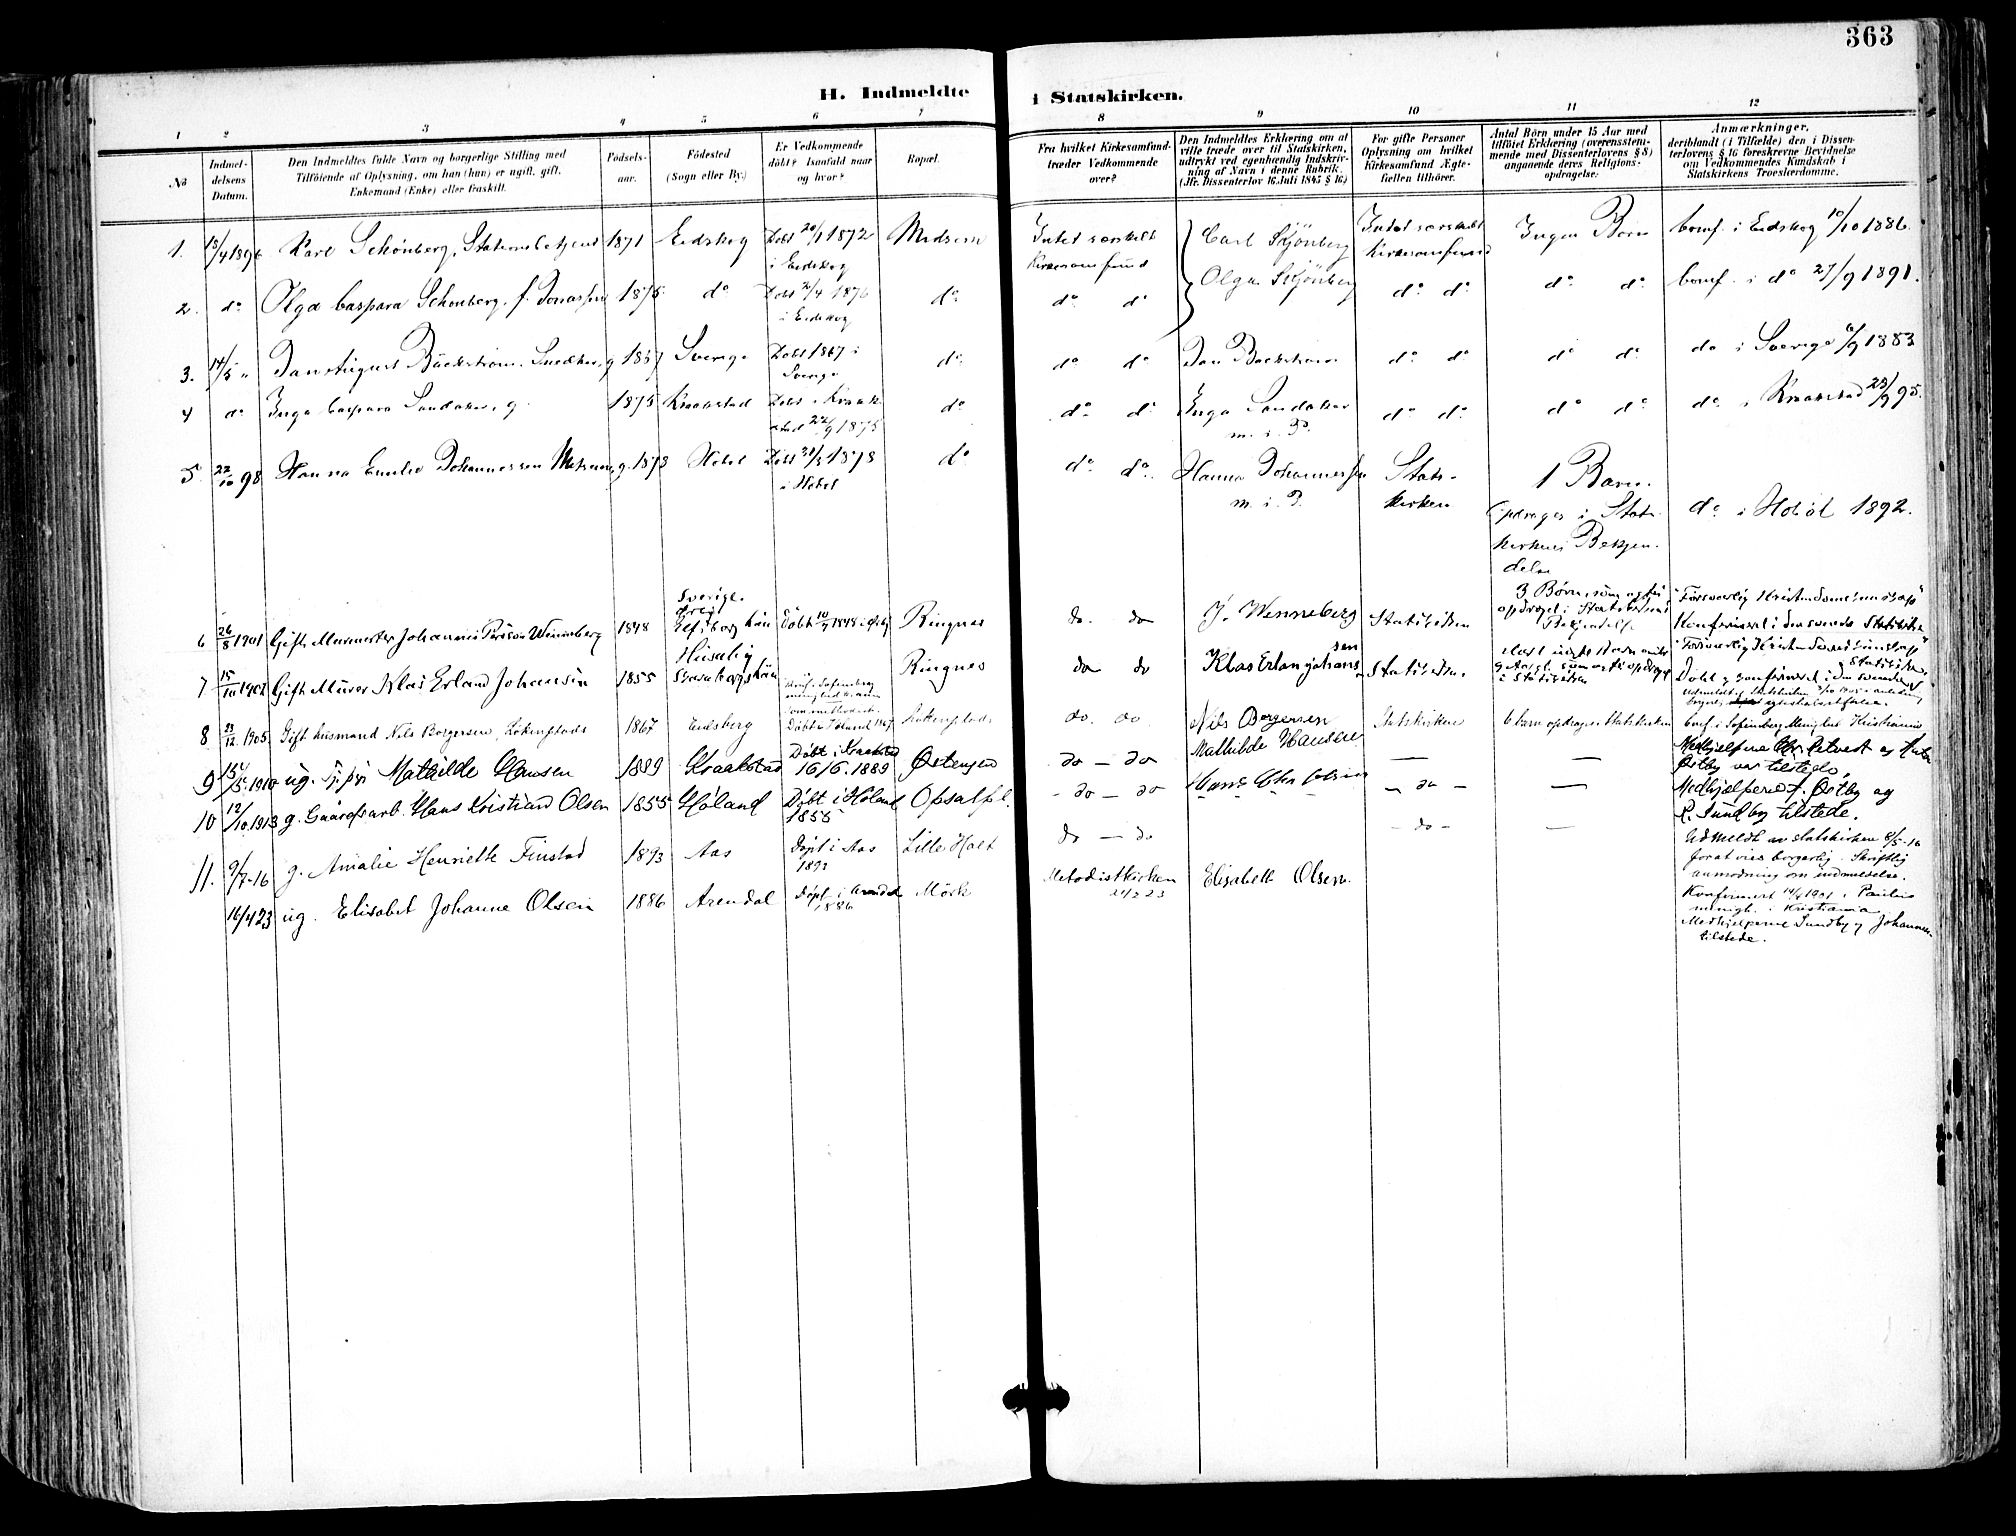 363
H. Indmeldte i Statskirken.
1 2 3 4 5 6 7 8 9 10 11 12
No
Indmel-
delsens
Datum.
Den Indmeldtes fulde Navn og borgerlige Stilling med
Tilføiende af Oplysning, om han (hun) er ugift, gift,
Enkemand (Enke) eller fraskilt.
Fødsels-
aar.
Fødested
(Sogn eller By.)
Er Vedkommende
døbt? Isaafald naar
og hvor?
Bopæl.
Fra hvilket Kirkesamfund
træder Vedkommende
over?
Den Indmeldtes Erklæring om at
ville træde over til Statskirken,
udtrykt ved egenhændig Indskriv-
ning af Navn i denne Rubrik.
(Jfr. Dissenterlov 16 Juli 1845 § 16)
For gifte Personer
Oplysning om hvilket
Kirkesamfund Ægte-
fællen tilhører.
Antal Børn under 15 Aar med
tilføiet Erklæring (overensstem-
mende med Dissenterlovens § 8)
angaaende deres Religions-
opdragelse:
Anmærkninger,
deriblandt (i Tilfælde) den i Dissen-
terlovens § 16 foreskrevne Bevidnelse
om Vedkommendes Kundskab i
Statskirkens Troeslærdomme.
1. 15/4 1896 Karl Schønberg, Stationsbetjent 1871 Eidskog Døbt 20/1 1872
i Eidskog
Intet særskilt
Kirkesamfund
Carl Skjönberg
Intet særskilt
Kirkesamfund
Ingen Børn
conf. i Eidskog 10/10 1886.
2. do Olga Caspara Schønberg, f. 1875 do Døbt 2/4 1876
i Eidskog
do do do
Olga Skjönberg
do do do do
conf. i do 27/9 1891.
3. 14/5 " Jan August Bäckström, Snedker, g 1857 Sverige Døbt 1857 i
Sverige
do do do
Jan Backström
do do do do
do i Sverige 1883
4 do Inga Caspara Sandaker, g. 1875 Kraakstad Døbt i Kraak-
stad 22/9 1875
do do do
Inga Sandaker
m. i. P.
do do do do
do i Kraakstad
5 22/10 98 Hanna Emilie Johannessen g. 1878 Hobøl Døbt 1878
i Hobøl
do do do
Hanna Johannessen
m. i. P.
Stats-
kirken
1 Barn.
opdrages i Stats-
kirkens Bekjen-
delse
do i Hobøl 1892.
6 26/8 1901 Gift Murmester Johannes Wenneberg 1848
Sverige
Elfsborg län
Døbt 1848 Ringnes
do. do
J. Wenneberg
Statskirken
3 Børn, som
opdrages i Statskirkens
Bekjendelse
Konfirmeret i den svenske Statskirke
7 15/10 1901 Gift Murer Klas Erland Johansen 1855
Husaby
Skaraborgslän
Ringnes
do do
Klas Erlan johans
sen
Statskirken.
i Statskirken
Døbt og konfirmeret i den svenske
Statskirke
8 12. 1905 Gift husmand Nils Borgersen, 1867 Eidsberg
do. do.
Nils Borgersen
Statskirken 6 barn opdrages i Statskirken
conf. i Sofienberg Menighet Kristiania
9 15/5 1910 ug. Tj.pi Mathilde Hansen 1889 Kraakstad
Døbt i Kraakstad
16/6. 1889
Østensjø
do - do
Mathilde Hansen
— —
Medhjælperne Chr. og
Østby var tilstede.
10 12/10 1913 g. Gaardsarb. Hans Kristian Olsen 1855 Høland Døbt i Høland
1855
Opsal pl.
- do - do
- do - —
Medhjælperne J. Østby og
P. Sundby tilstede.
11. 9/7-16 g. Amalie Henriette Finstad 1893 Aas Døpt i Aas
1893
Lille Holt
do - do
- do - —
Udmeldt av statskirken 8/5-16
for at vies borgerlig. Skriftlig
anmodning om indmeldelse.
16/4 23 ug. Elisabet Johanne Olsen 1886 Arendal Døpt i Arendal
1886
Mörk
Metodistkirken
21/2 23
Elisabeth Olsen.
Konfirmert 14/4 1901 i Paulus
menigh. i Kristiania
Medhjelperne Sundby og Johannesen
tilstede.